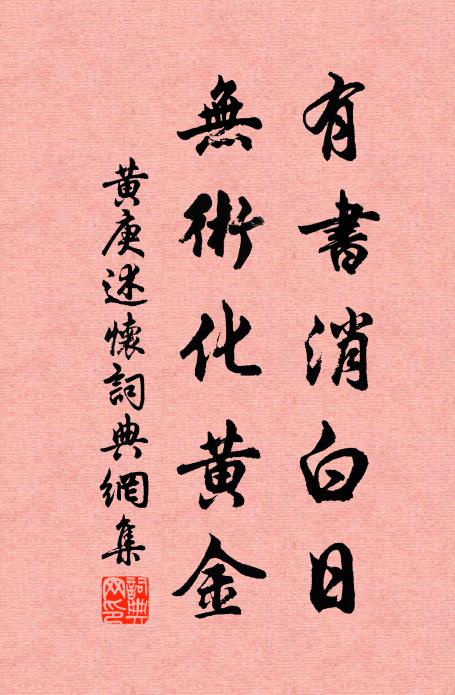 有書消白日
無術化黃金
黃庚述懷詞典網集
詞典網印